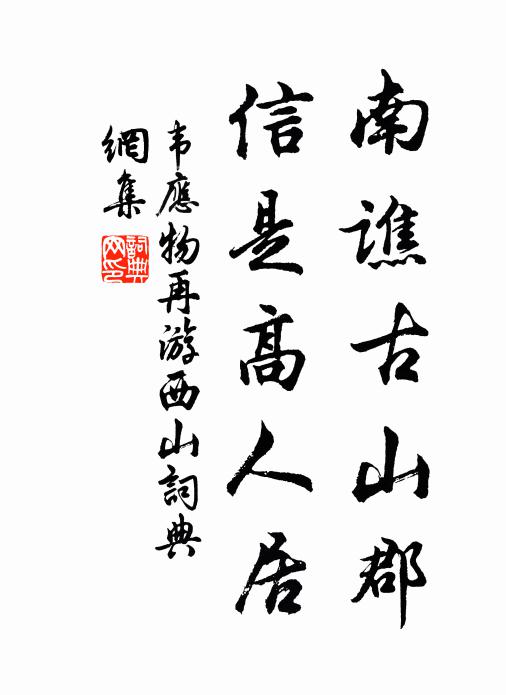 南譙古山郡
信是高人居
韦應物再游西山詞典
網集
詞典网印